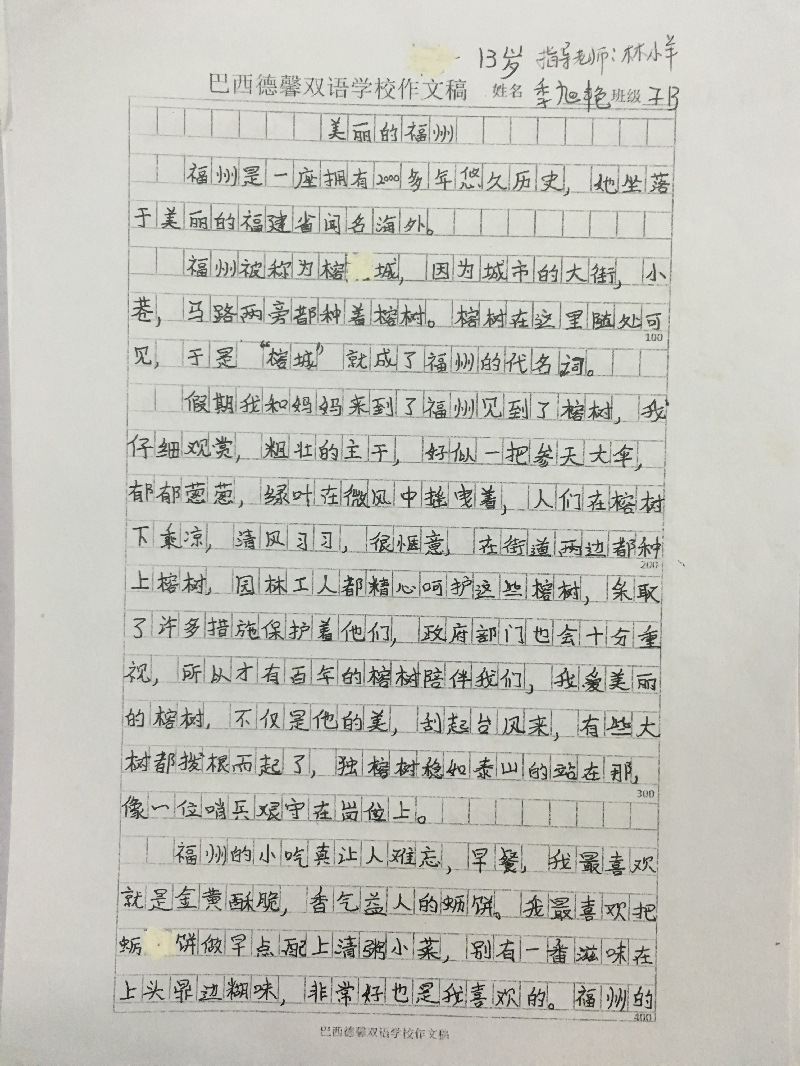 13岁 指导老师：林小羊
巴西德馨双语学校作文稿 姓名 季旭艳 班级 子B
美丽的福州
福州是一座拥有2000多年悠久历史，她坐落
于美丽的福建省闻名海外。
福州被称为榕城，因为城市的大街，小
巷，马路两旁都种着榕树。榕树在这里随处可
100
见，于是“榕城”就成了福州的代名词。
假期我和妈妈来到了福州见到了榕树，我
仔细观赏，粗壮的主干，好似一把参天大伞，
郁郁葱葱，绿叶在微风中摇曳着，人们在榕树
下乘凉，清风习习，很惬意，在街道两边都种
200
上榕树，园林工人都精心呵护这些榕树，采取
了许多措施保护着他们，政府部门也会十分重
视，所以才有百年的榕树陪伴我们，我爱美丽
的榕树，不仅是他的美，刮起台风来，有些大
树都拨根而起了，独榕树稳如泰山的站在那，
300
像一位哨兵艰守在岗位上。
福州的小吃真让人难忘，早餐，我最喜欢
就是金黄酥脆，香气益人的蛎饼。我最喜欢把
蛎饼做早点配上清粥小菜，别有一番滋味在
上头鼎边糊味，非常好也是我喜欢的。福州的
400
巴西德馨双语学校作文稿